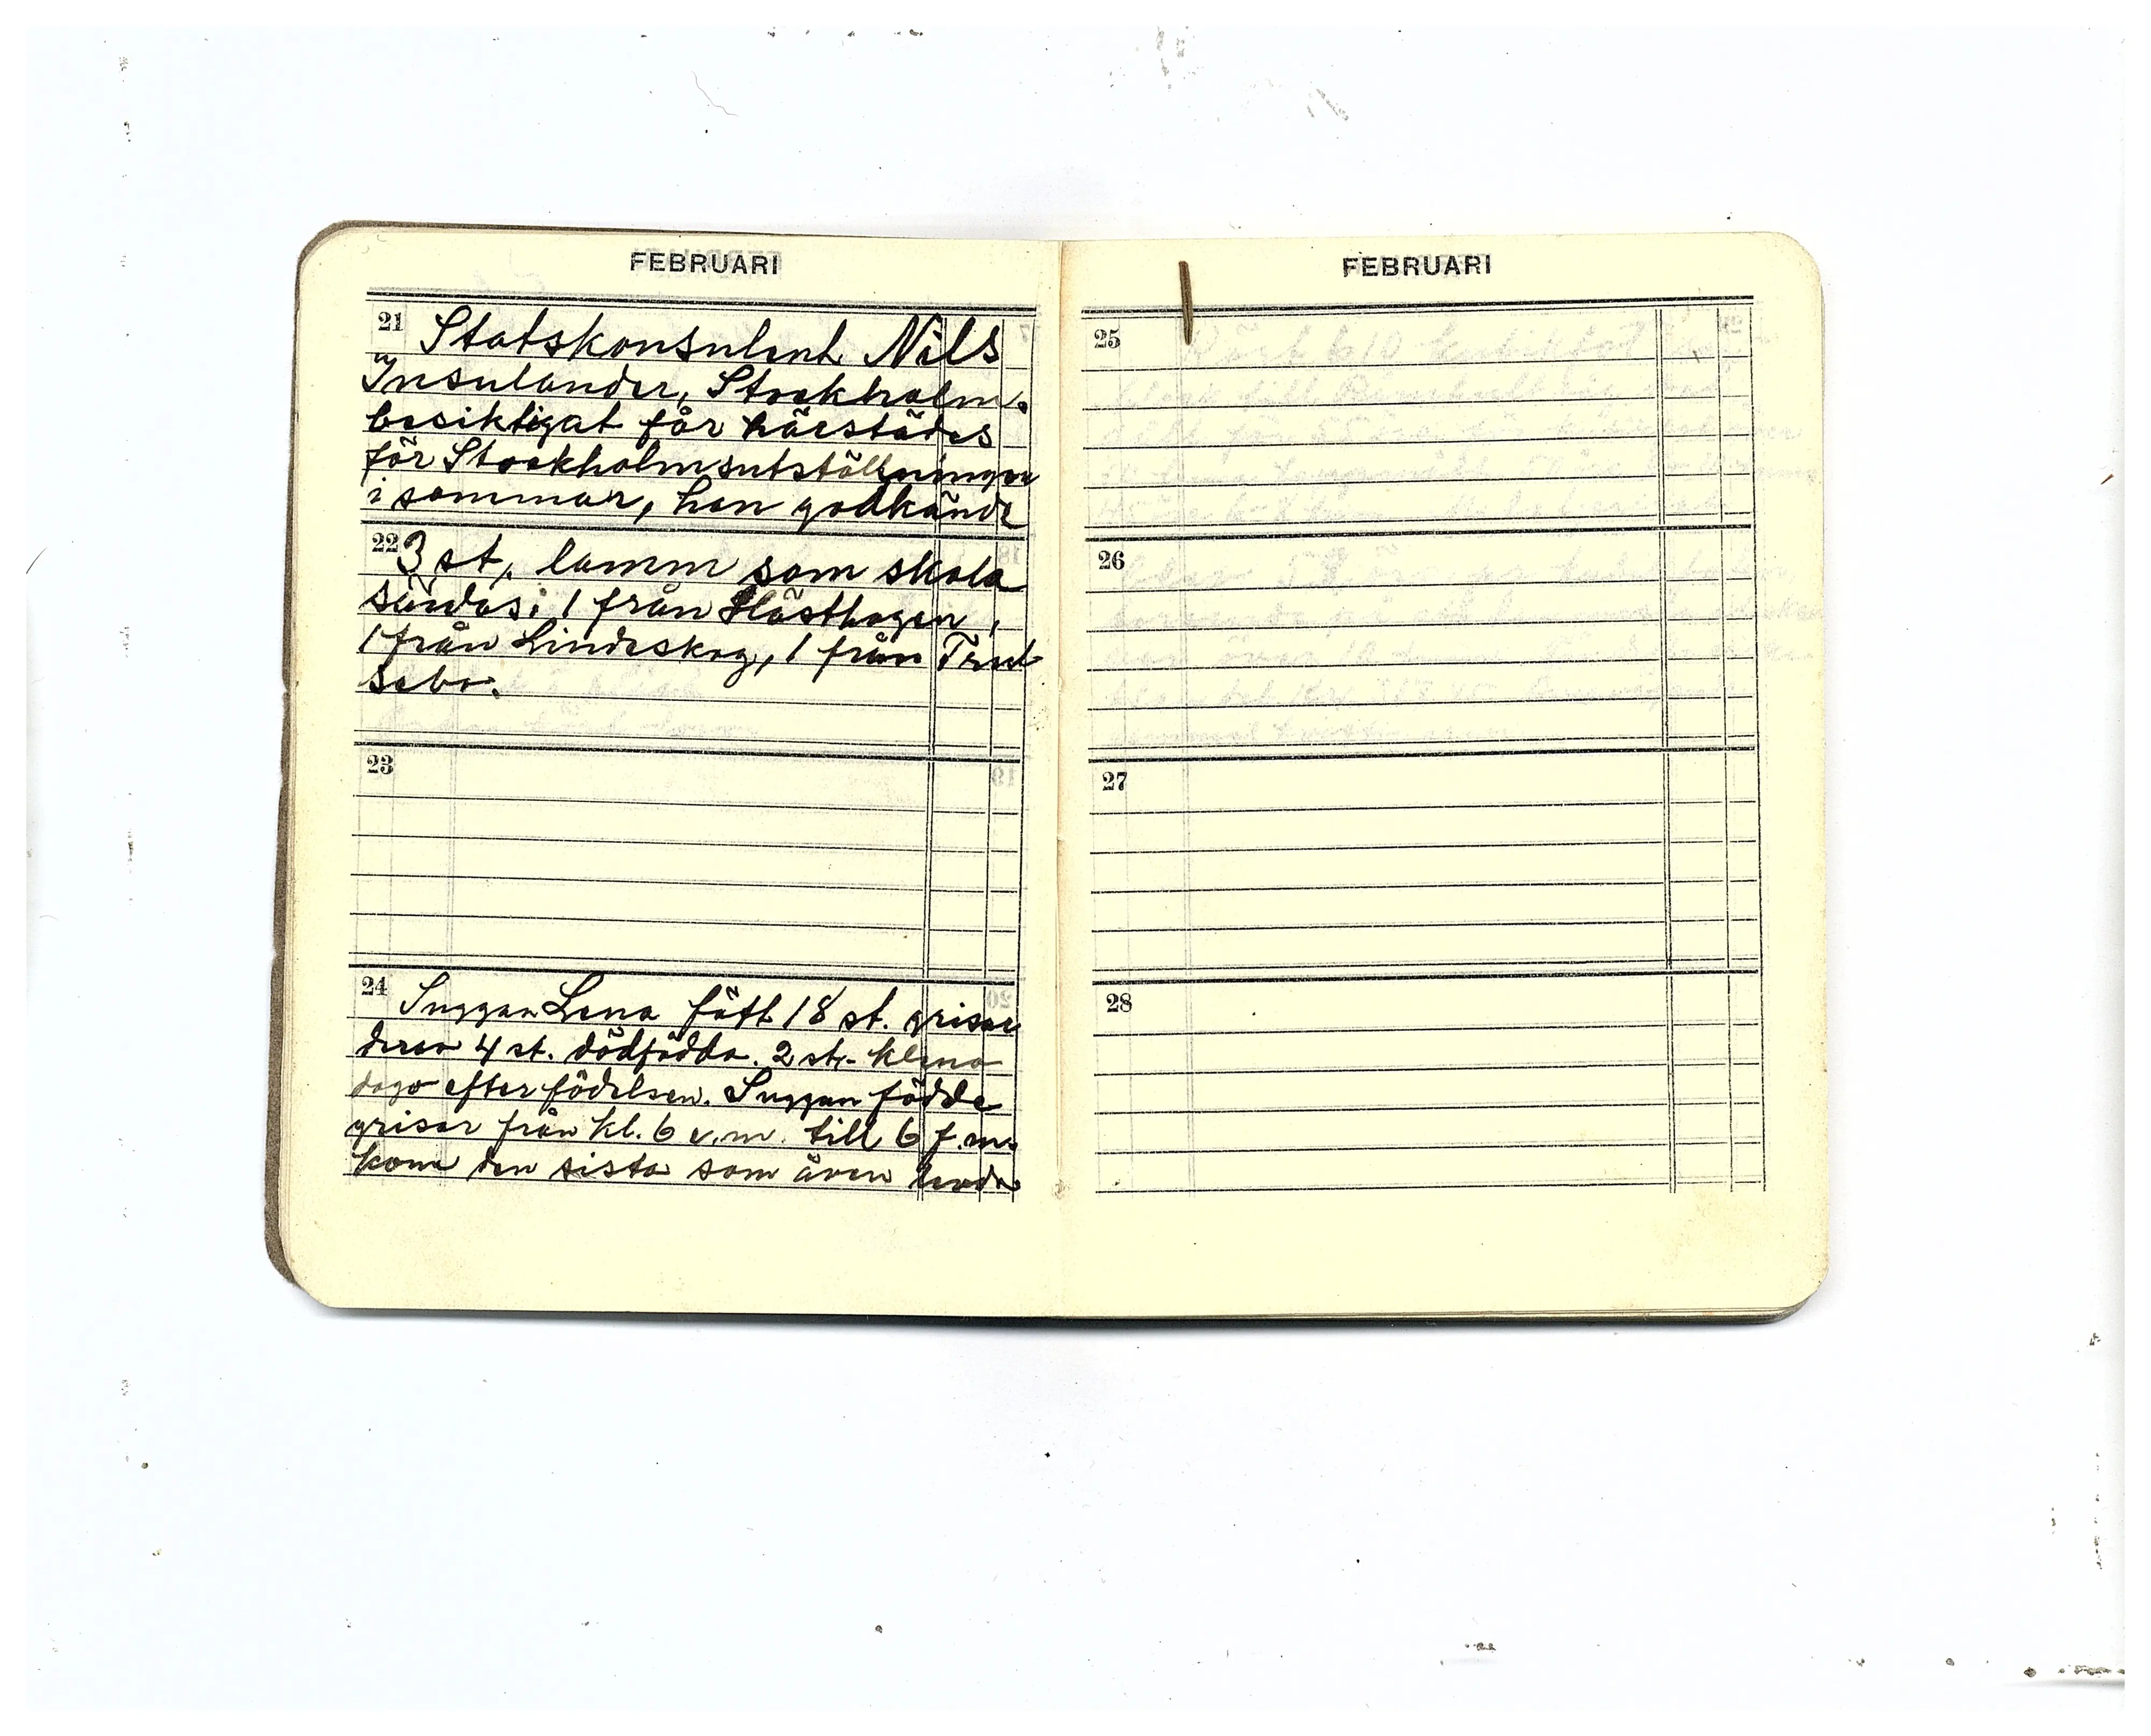 FEBRUARI
21 Statskonsulent Nils
Insulander, Stockholm.
besiktigat får härstädes
för Stockholmsutställningen
i sommar, han godkände
22 3 st, lamm som skola
sändas; 1 från Hästhagen,
1 från Lindeskog, 1 från Trut
sebo.
23
24 Suggan Lena fått 18 st. grisar
derav 4 st. dödfödda. 2 st. klena
dogo efter födelsen. Suggan födde
grisar från kl. 6 e.m. till 6 f.m.
kom den sista som även levde
FEBRUARI
25
26
27
28